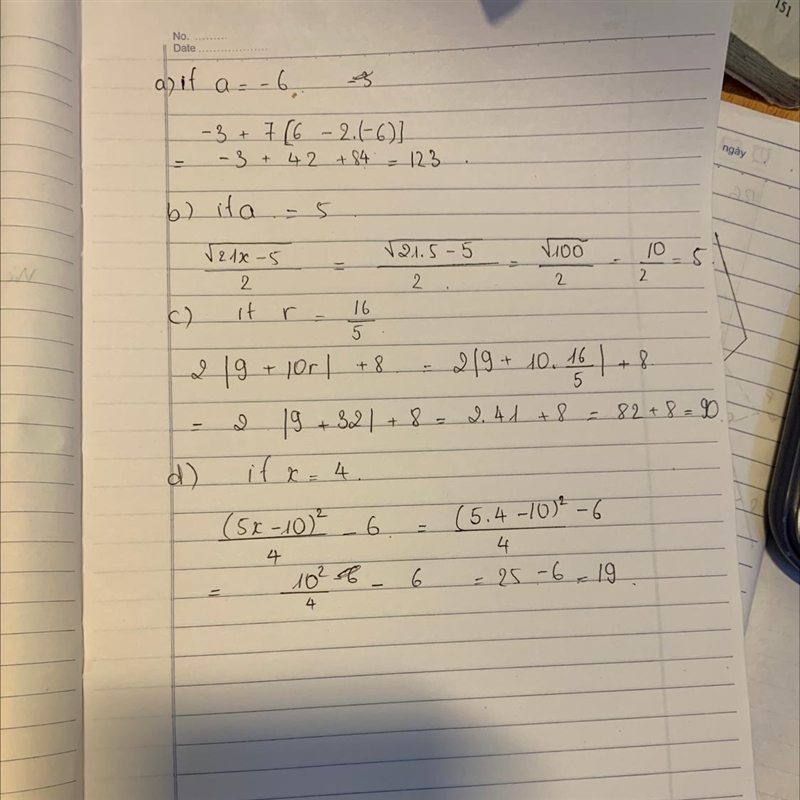 No. ........
Date ..................
151
a) if a = -6.
-3 + 7 [6 - 2.(-6)]
= -3 + 42 + 84 = 123.
ngày
b) if a = 5
√21x - 5 / 2 = √21.5 - 5 / 2 = √100 / 2 = 10 / 2 = 5
c) if r = 16/5
2 |9 + 10r| + 8 = 2|9 + 10. 16/5| + 8
= 2 |9 + 32| + 8 = 2.41 + 8 = 82 + 8 = 90
d) if x = 4.
(5x - 10)² / 4 - 6 = (5.4 - 10)² / 4 - 6
= 10² / 4 - 6 = 25 - 6 = 19.